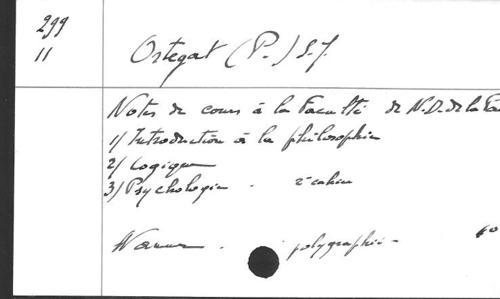 299
11
Ostegat (P.) S.J.
Notes de cours à la Faculté de N.D. de la Pa
1/ Introduction à la philosophie
2/ Logique
3/ Psychologie . 2 cahier
Namur . polygraphié -